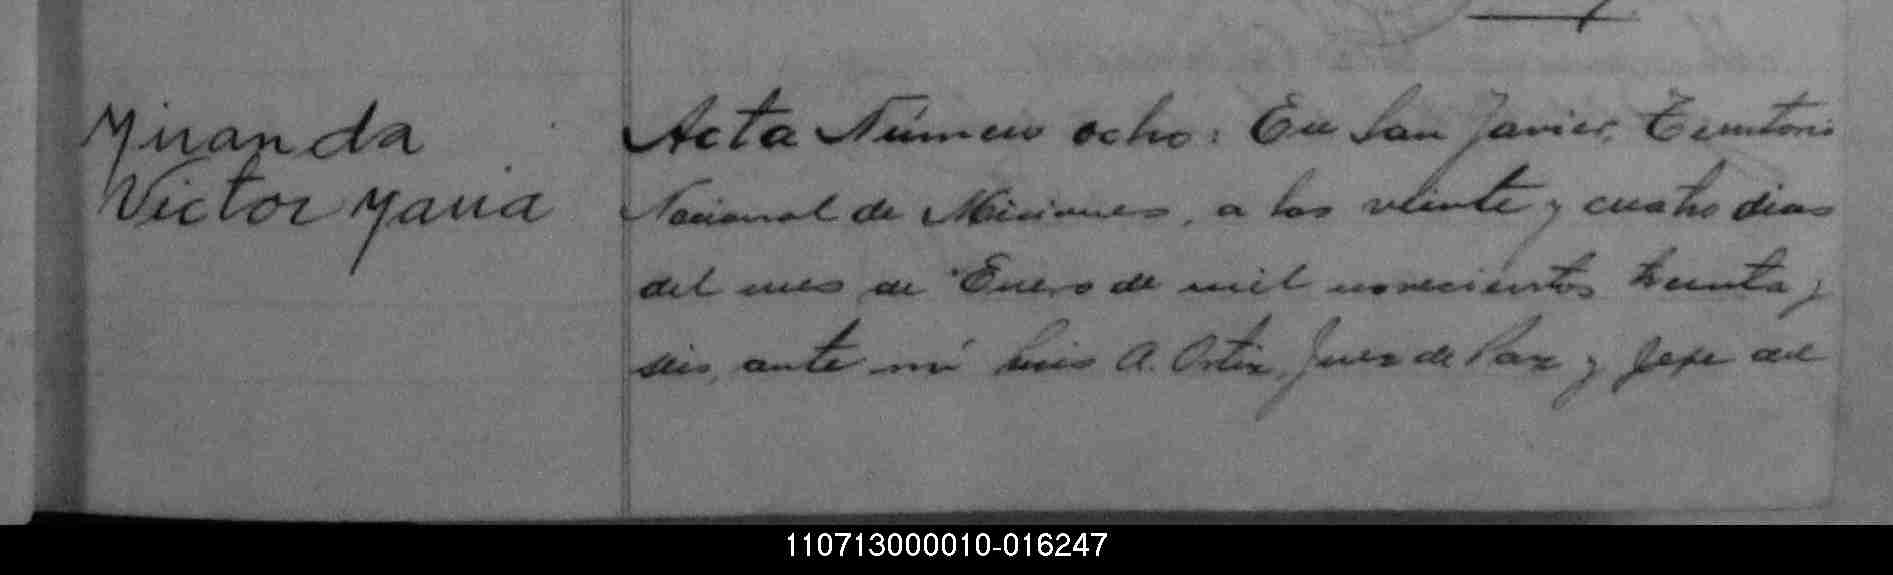 Miranda
Victor Maria
Acta Número ocho: En San Javier, Territorio
Nacional de Misiones, a los veinte y cuatro dias
del mes de Enero de mil novecientos treinta y
seis, ante mí Luis A. Ortiz, Juez de Paz y Jefe del
110713000010-016247